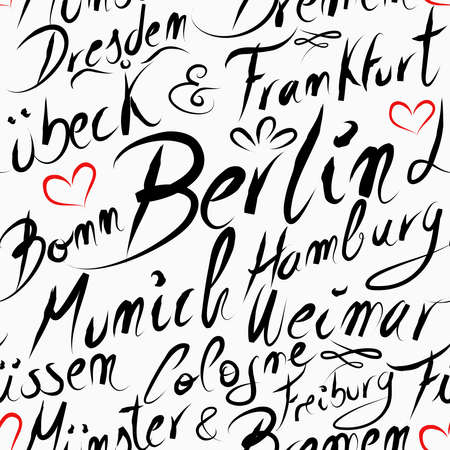 Dresden
übeck & Frankfurt
Berlin L
Bonn Hamburg
Munich Weimar
üssen Cologne Freiburg Fü
Münster & Bremen